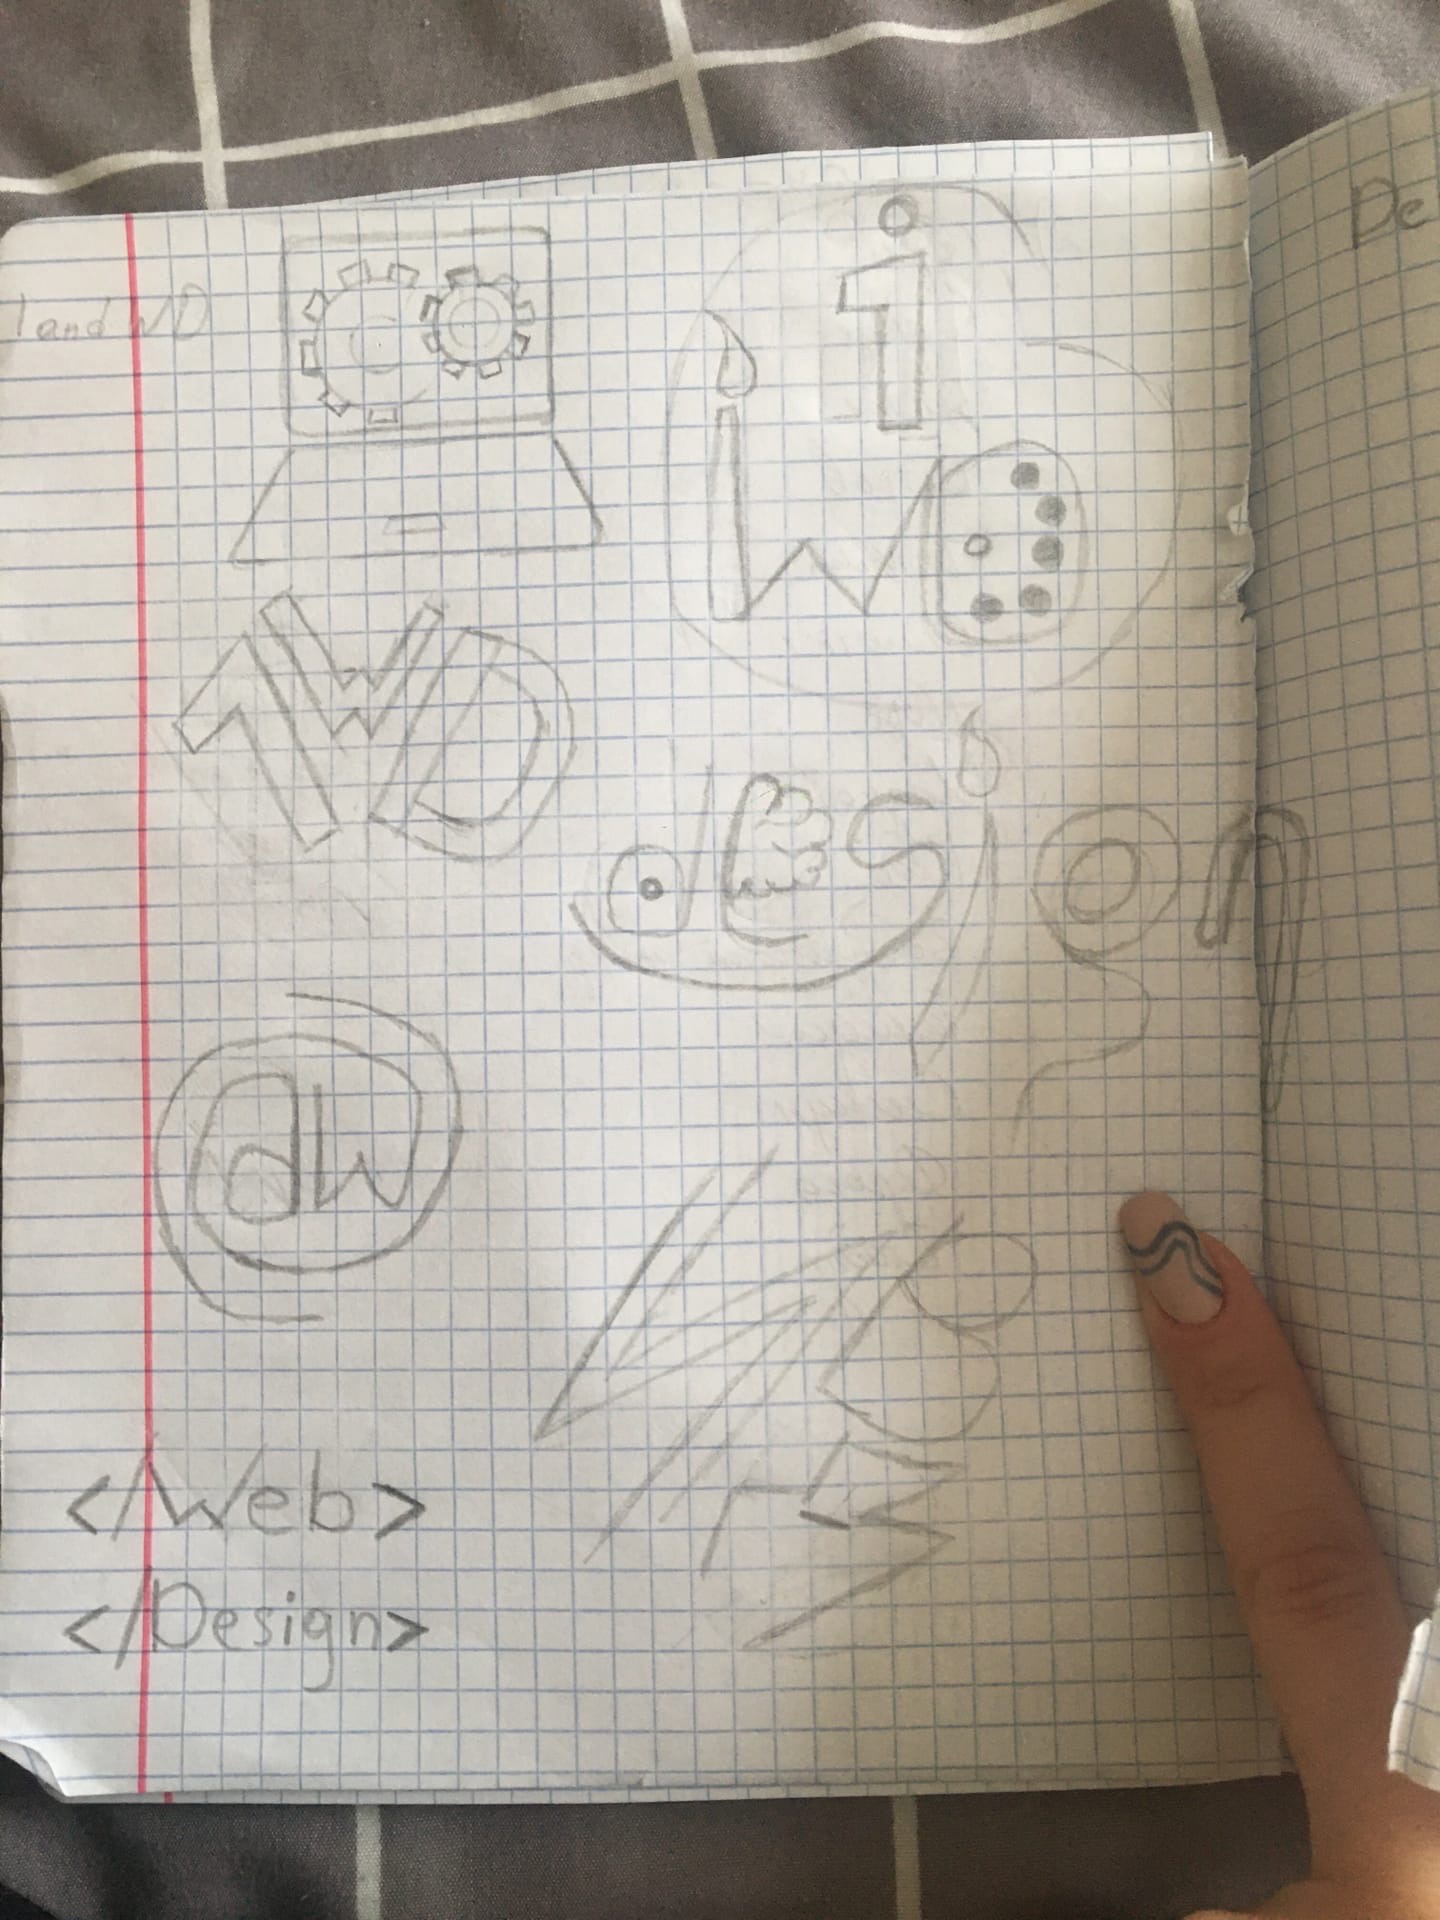 1 and WD
De
1
W
1WD
design
dw
</Web>
</Design>